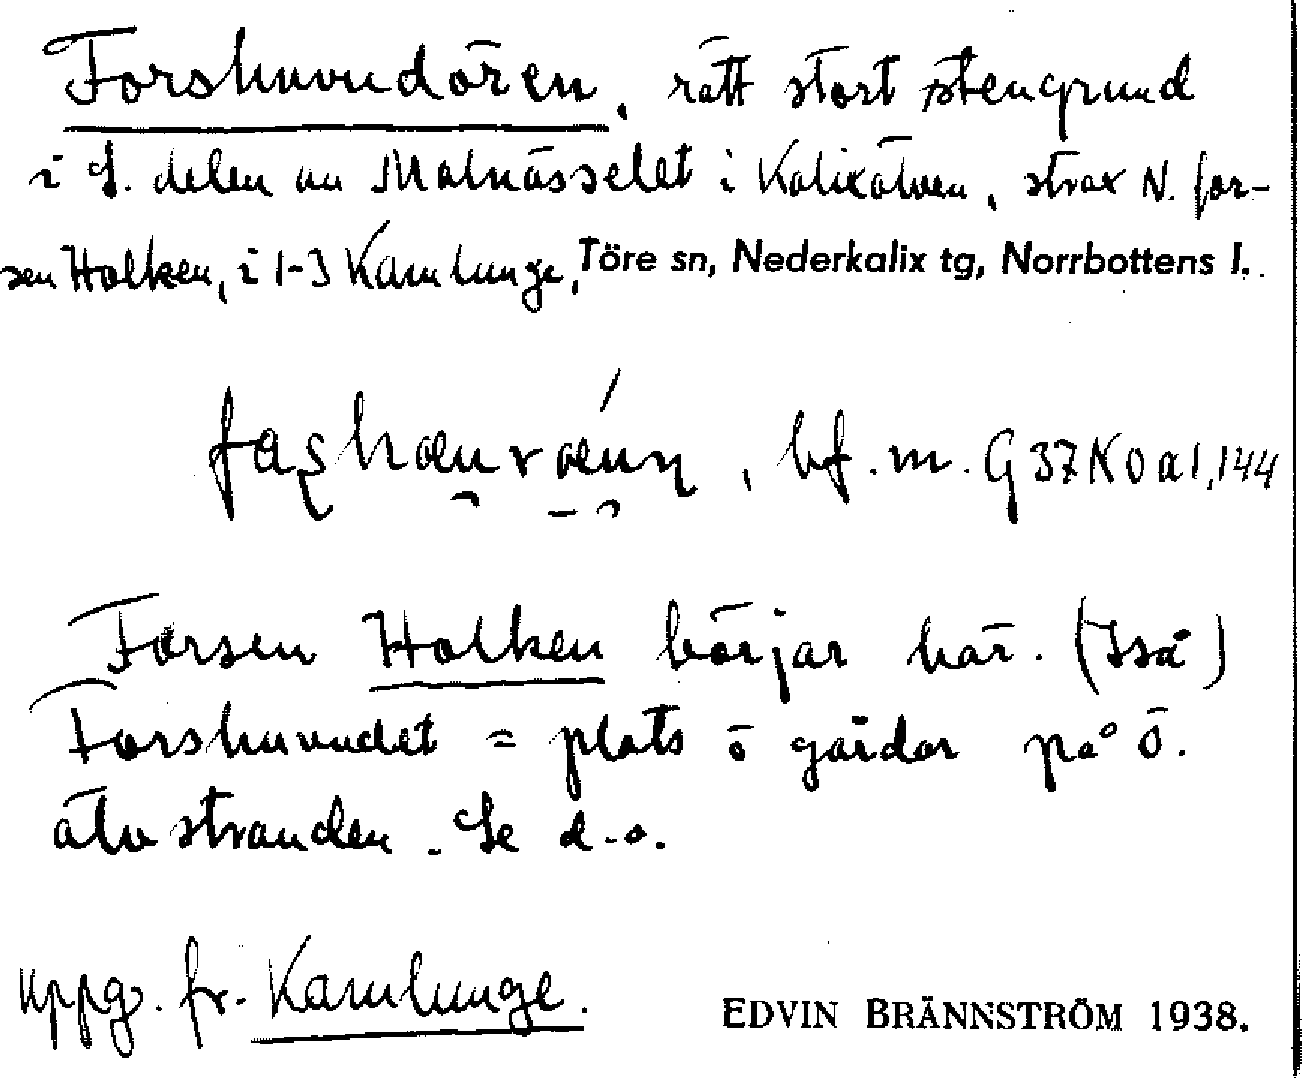 Forshuvudören, rätt stort stengrund
i S. delen av Malnässelet i Kalixälven, strax N. for-
sen Holken, i 1-3 Kamlunge, Töre sn, Nederkalix tg, Norrbottens l.
bf. m. G 37 N 0 a 1,144
Forsen Holken börjar här. (Iså)
Forshuvudet = plats o gårdar på ö.
älvstranden. Se d.o.
uppg. fr. Kamlunge.
EDVIN BRÄNNSTRÖM 1938.